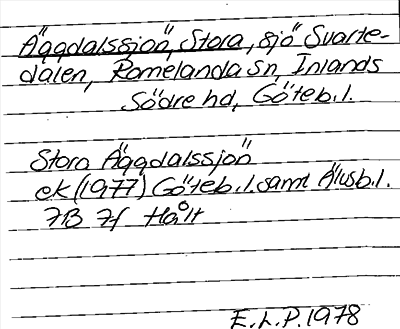 Äggdalssjön, Stora, sjö Svarte-
dalen, Romelanda sn, Inlands
Södre hd, Göteb.l.
Stora Äggdalssjön
ek (1977) Göteb.l. samt Älvsb.l.
7B 7f Hålt
E.L.P. 1978